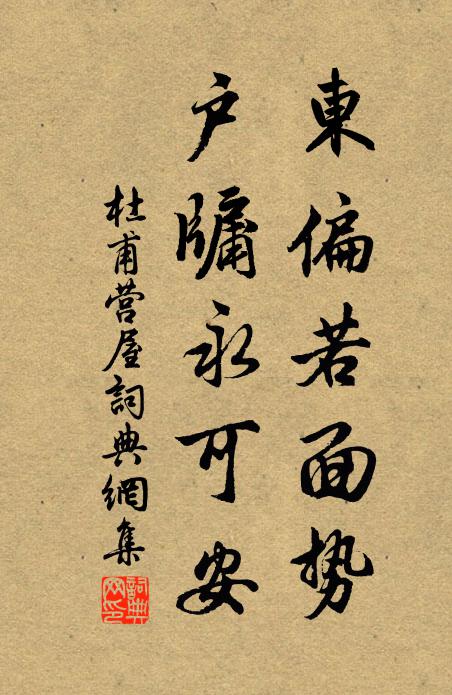 東偏若面势
户牖永可安
杜甫营屋詞典網集
詞典网印